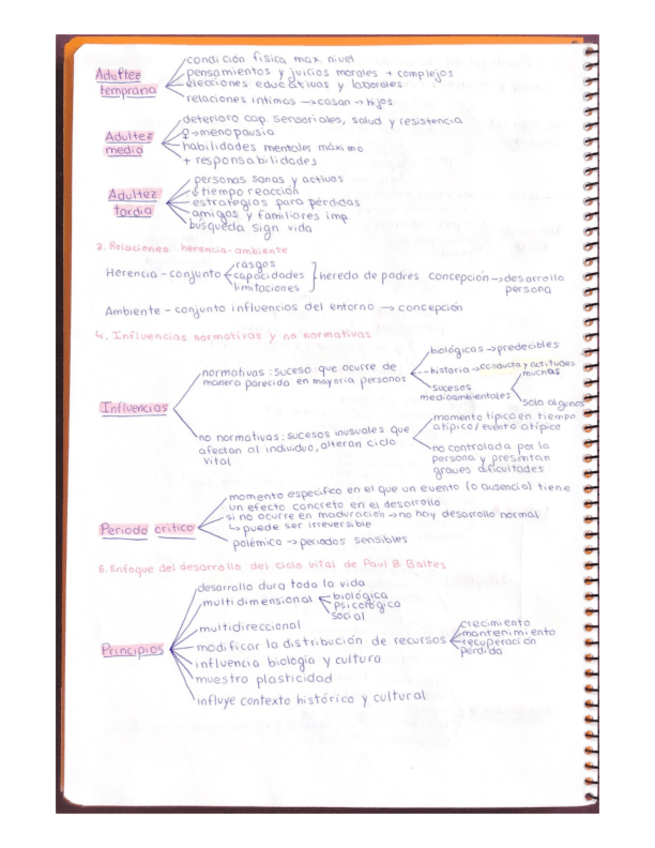 Adultez temprana
condición física max. nivel
pensamientos y juicios morales + complejos
elecciones educativas y laborales
relaciones íntimas → casan → hijos
Adultez media
deterioro cap. sensoriales, salud y resistencia
♀ → menopausia
habilidades mentales máximo
+ responsabilidades
Adultez tardía
personas sanas y activas
↓ tiempo reacción
estrategias para pérdidas
amigos y familiares imp.
búsqueda sign. vida
3. Relaciones herencia-ambiente
Herencia - conjunto
rasgos
capacidades
limitaciones
hereda de padres concepción → desarrollo
persona
Ambiente - conjunto influencias del entorno → concepción
4. Influencias normativas y no normativas
Influencias
normativas: suceso que ocurre de
manera parecida en mayoría personas
biológicas → predecibles
historia → conducta y actitudes
sucesos
medioambientales
muchas
solo algunos
no normativas: sucesos inusuales que
afectan al individuo, alteran ciclo
vital
momento típico en tiempo
atípico / evento atípico
no controlada por la
persona y presentan
graves dificultades
Periodo crítico
momento específico en el que un evento (o ausencia) tiene
un efecto concreto en el desarrollo
si no ocurre en maduración → no hay desarrollo normal
↳ puede ser irreversible
polémico → periodos sensibles
5. Enfoque del desarrollo del ciclo vital de Paul B. Baltes
Principios
desarrollo dura toda la vida
multidimensional
biológica
psicológica
social
multidireccional
modificar la distribución de recursos
crecimiento
mantenimiento
recuperación
pérdida
influencia biología y cultura
muestra plasticidad
influye contexto histórico y cultural